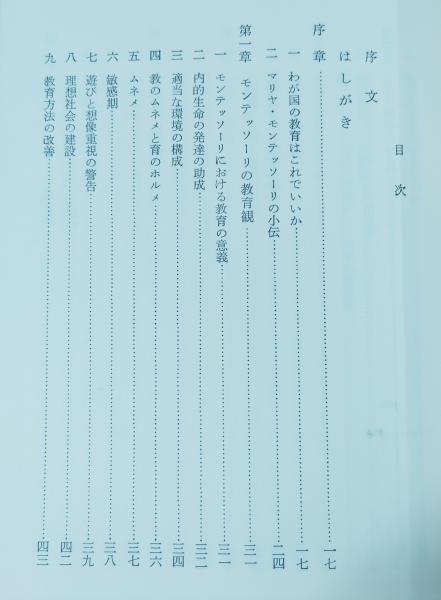 目次
序文
はしがき
序章……一七
一 わが国の教育はこれでいいか……一七
二 マリヤ・モンテッソーリの小伝……二四
第一章 モンテッソーリの教育観……三一
一 モンテッソーリにおける教育の意義……三一
二 内的生命の発達の助成……三二
三 適当な環境の構成……三四
四 教のムネメと育のホルメ……三六
五 ムネメ……三七
六 敏感期……三八
七 遊びと想像重視の警告……三九
八 理想社会の建設……四二
九 教育方法の改善……四三